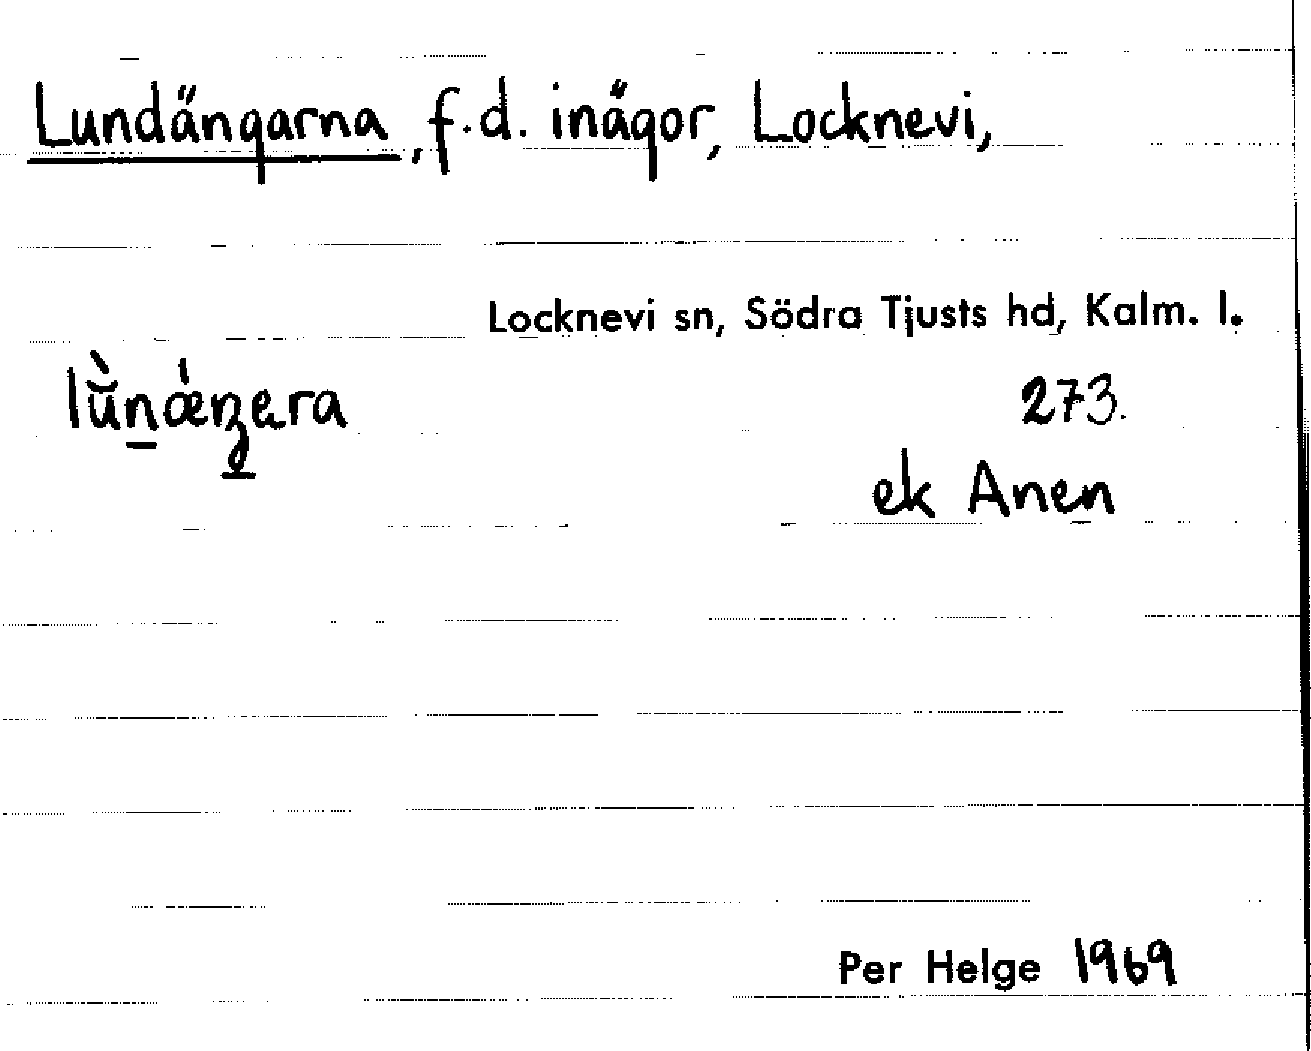 Lundängarna, f.d. inägor, Locknevi,
Locknevi sn, Södra Tjusts hd, Kalm. l.
273.
ek Anen
Per Helge 1969